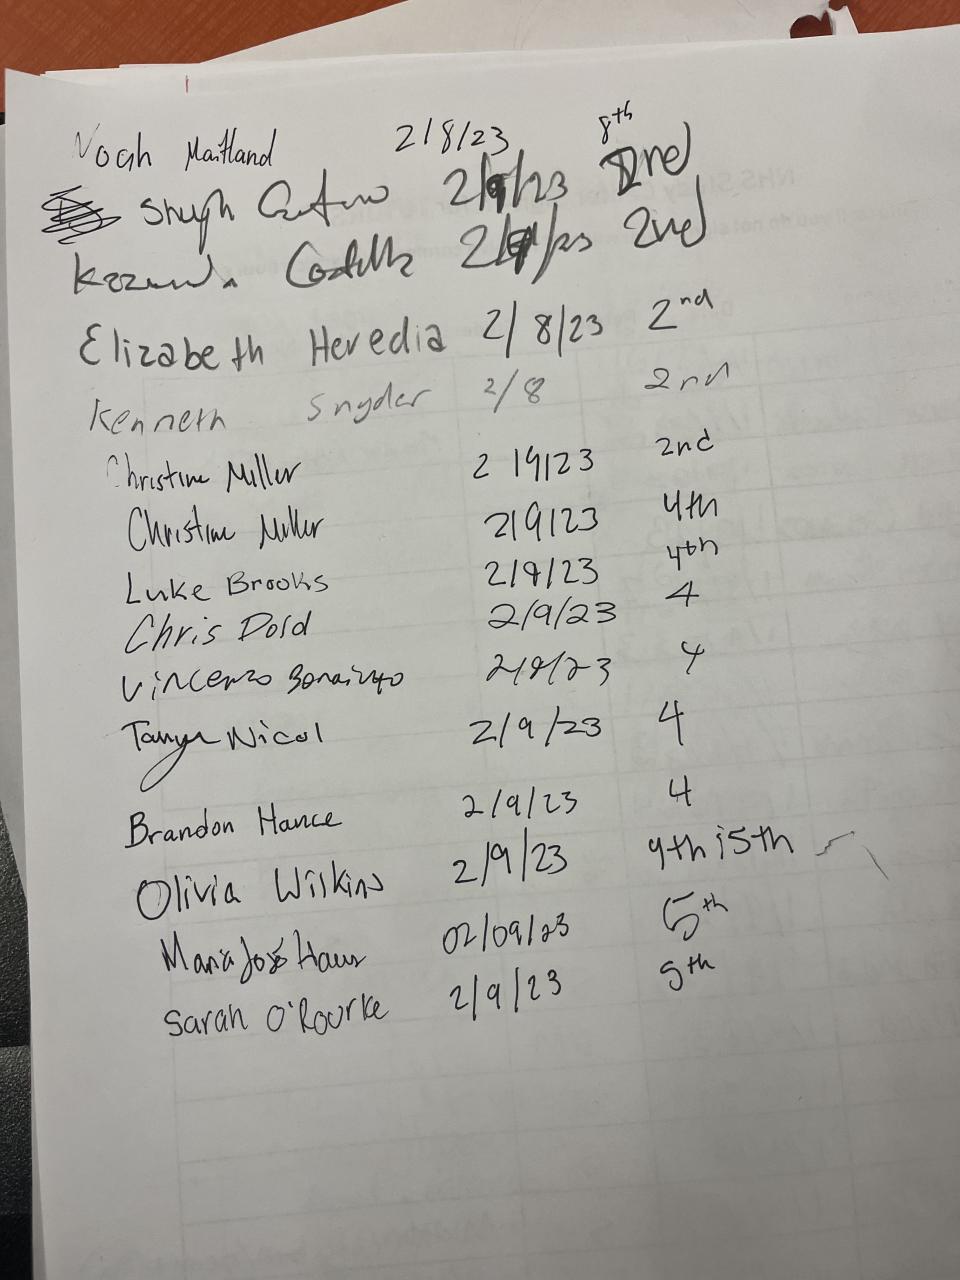 Noah Maitland 2/8/23 8th
2/9/23 2nd
2/9/23 2nd
Elizabeth Heredia 2/8/23 2nd
Kenneth Snyder 2/8 2nd
Christine Miller 2/9/23 2nd
Christine Miller 2/9/23 4th
Luke Brooks 2/9/23 4th
Chris Dold 2/9/23 4
Vincenzo 2/9/23 4
Tanya Nicol 2/9/23 4
Brandon Hance 2/9/23 4
Olivia Wilkins 2/9/23 4th i5th
Maria José 02/09/23 5th
Sarah O'Rourke 2/9/23 5th